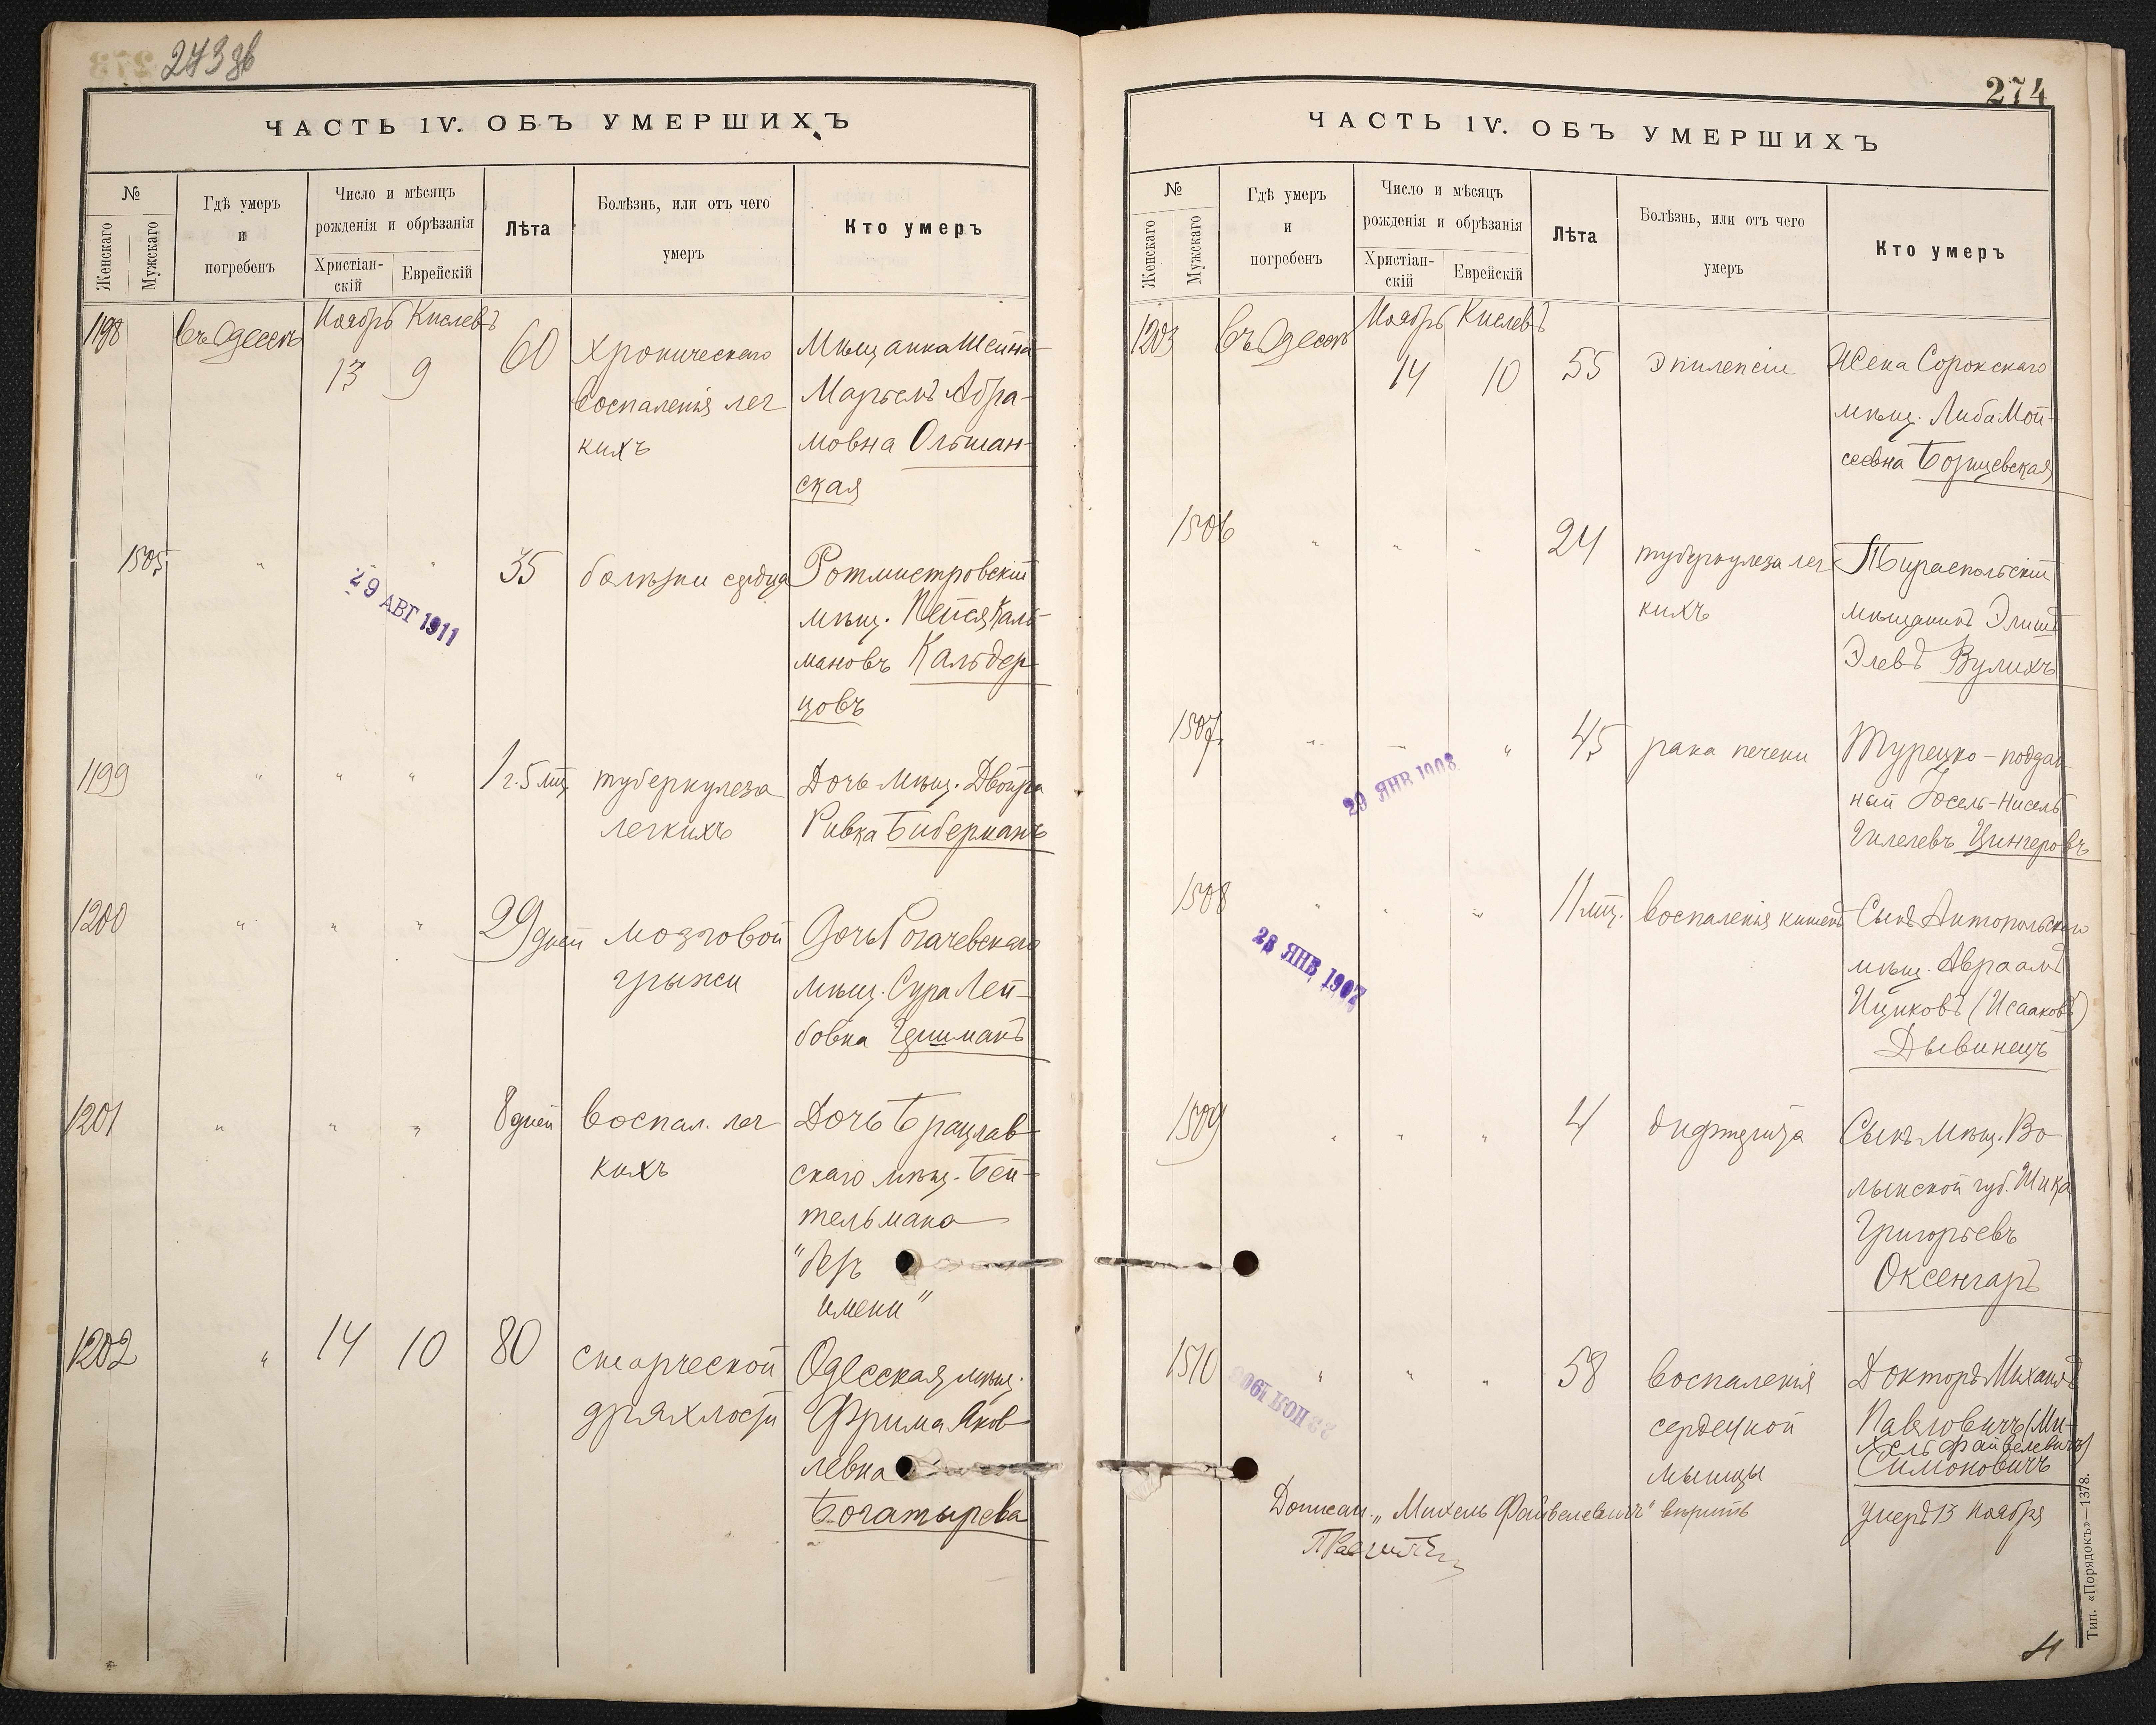 273 об
ЧАСТЬ IV. ОБЪ УМЕРШИХЪ
№
Женскаго
Мужскаго
Гдѣ умеръ
и
погребенъ
Число и мѣсяцъ
рожденія и обрѣзанія
Христіан-
скій
Еврейскій
Лѣта
Болѣзнь, или отъ чего
умеръ
Кто умеръ
1198
въ Одессѣ
Ноябрь Кислевъ
13 9
60
хроническаго
воспаленія лег
кихъ
Мѣщанка Шейна
Марьемъ Абра-
мовна Ольшан-
ская
1505
"
"
29 АВГ 1911
35
болѣзни сердца
Ротмистровскій
мѣщ. Пейся Каль-
мановъ Кальдер-
цовъ
1199
" " "
1 г. 5 мц.
туберкулеза
легкихъ
Дочь мѣщ. Двойра
Ривка Биберманъ
1200
" " "
29 дней
мозговой
грыжи
Дочь Рогачевскаго
мѣщ. Сура Лей-
бовна
1201
" " "
8 дней
воспал. лег
кихъ
Дочь Брацлав-
скаго мѣщ. Бей-
тельмана
"безъ
имени"
1202
"
14 10
80
старческой
дряхлости
Одесская мѣщ.
Фрима Яков-
левна
Богатырева
274
ЧАСТЬ IV. ОБЪ УМЕРШИХЪ
№
Женскаго
Мужскаго
Гдѣ умеръ
и
погребенъ
Число и мѣсяцъ
рожденія и обрѣзанія
Христіан-
скій
Еврейскій
Лѣта
Болѣзнь, или отъ чего
умеръ
Кто умеръ
1203
въ Одессѣ
Ноябрь Кислевъ
14 10
55
эпилепсіи
Жена Сорокскаго
мѣщ. Либа Мой-
сеевна Борщевская
1506
" " "
24
туберкулеза лег
кихъ
Тираспольскій
мѣщанинъ
Элевъ Вулихъ
1507
" " "
29 ЯНВ 1908
45
рака печени
Турецко-поддан
ный Іосель-Нисель
Гилелевъ Цингеровъ
1508
" " "
28 ЯНВ 1907
11 мц.
воспаленія кишекъ
Сынъ Антопольскаго
мѣщ. Авраамъ
Ицковъ (Исааковъ)
Дывинецъ
1509
" " "
4
дифтерита
Сынъ мѣщ. Во
лынской губ. Шика
Григорьевъ
Оксенгаръ
1510
" " "
58
воспаленія
сердечной
мышцы
Докторъ Михаилъ
Павловичъ (Ми-
хель Файвелевичъ)
Симоновичъ
умеръ 13 ноября
Дописан. „Михель Файвелевичъ" вѣрить
Тип. «Порядокъ»—1378.